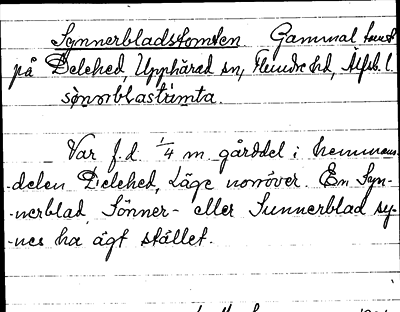 Synnerbladstomten. Gammal tomt
på Delehed, Upphärad sn, Flundre hd, Älfsb. l.
sønorblastømta.
Var f.d. 1/4 m. gårddel i hemmans-
delen Delehed, Läge norröver. En Syn-
nerblad, Sönner- eller Sunnerblad sy-
nes ha ägt stället.